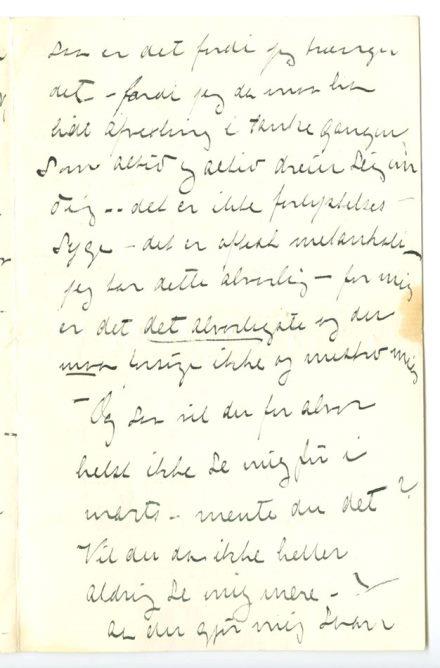 saa er det fordi jeg trænger
det – fordi jeg da maa ha
lidt afveksling i tanke gangen
som altid og altid dreier seig om
deig – – det er ikke forlystelses –
syge – det er oftest melankoli –
jeg tar dette alvorlig – for mig
er det det alvorligste og du
maa forsøge ikke og mistro mig
– Og saa vil du for alvor
helst ikke se mig før i
marts – mente du det ?
Vil du da ikke heller
aldrig se mig mere – ?
du gjør mig svar